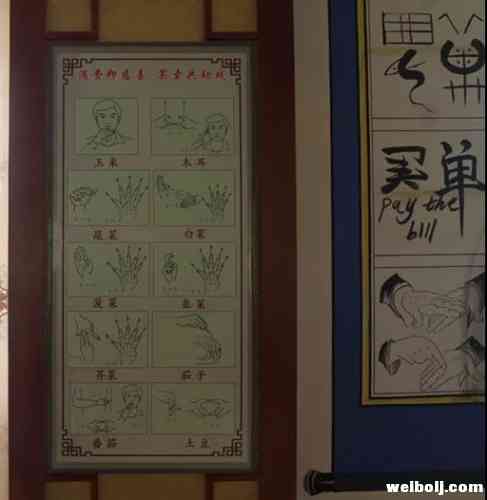 消费即慈善
玉米 木耳
蔬菜 白菜
菠菜 韭菜
芥菜 茄子
番茄 土豆
买单
pay the
bill
welbolj.com